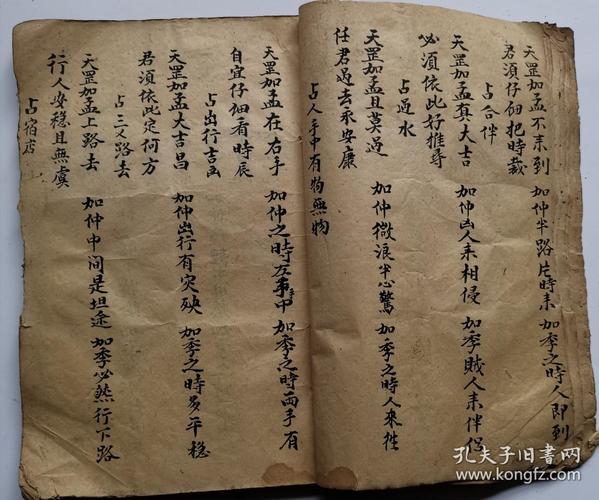 天罡加孟不未到 加仲半路片時未 加季之時人即到
君須仔佃把時裁
占合伴
天罡加孟真大吉 加仲凶人未相侵 加季賊人未伴侣
必須依此好推尋
占過水
天罡加孟且莫過 加仲微浪半心驚 加季之時人來徃
任君過去永安康
占人手中有物無物
天罡加孟在右手 加仲之時左手中 加季之時両手有
自宜仔佃看時辰
占出行吉凶
天罡加孟大吉昌 加仲出行有災殃 加季之時多平穏
君須依此定何方
占三叉路去
天罡加孟上路去 加仲中间是坦途 加季必然行下路
行人安穏且無虞
占宿店
孔夫子旧書网
kongfz.com